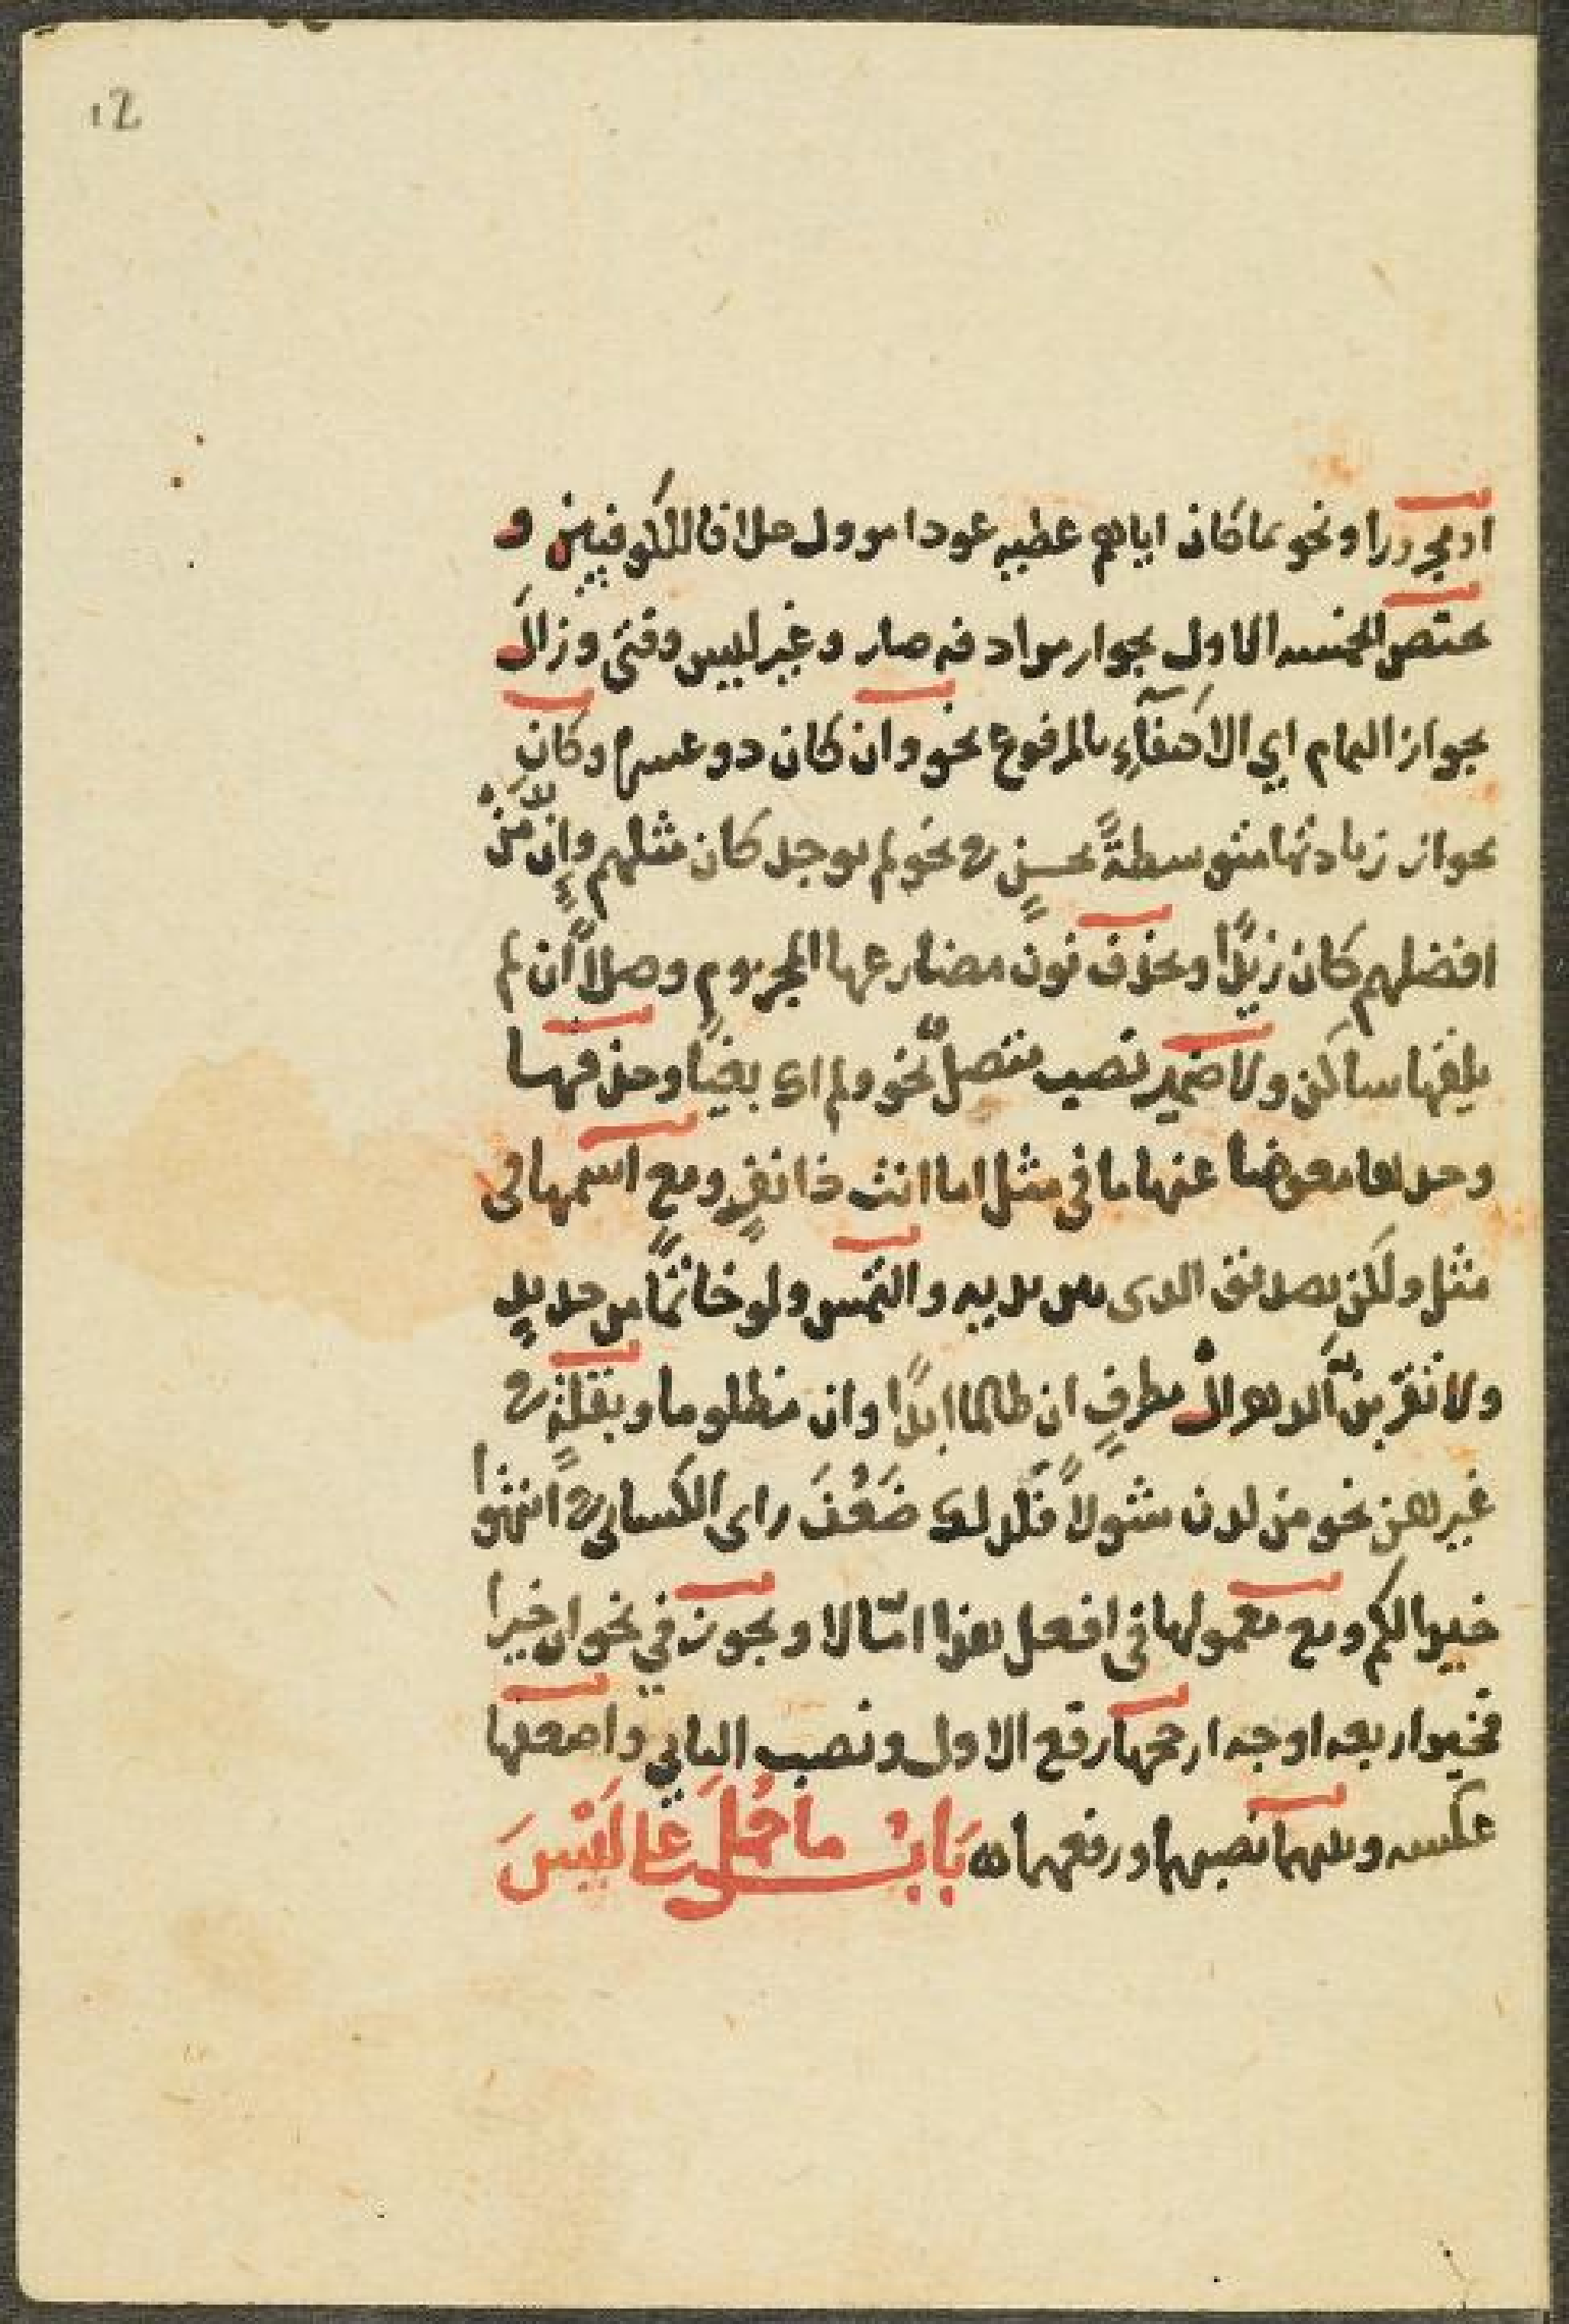 12
او مجرورا ونحو بما كان اياهم عطيه عودا موول خلافا للكوفيين و
تختص الخمسه الاول بجواز مرادفه صار وغير ليس وفتئ وزال
بجواز التمام اي الاكتفآءِ بالمرفوع نحو وان كان ذو عسره وكان
بجواز زيادتها متوسطةً نحو لم يوجد كان مثلهم وان من
افضلهم كان زيدًا وحذف نون مضارعها المجزوم وصلاً ان لم
يلقها ساكن ولا ضمير نصب متصل نحو ولم اك بغيًا وحذفها
وحدها معوضا عنها ما في مثل اما انت ذا نفرٍ ومع اسمها في
مثل ولكن تصديق الذى بين يديه والتمس ولو خاتمًا من حديدٍ
ولا تقربن الدهر ال مطرفٍ ان ظالما ابدًا وان مظلوما وبقلةٍ في
غير هن نحو من لدن شولاً فلذلك ضَعُفَ راى الكسائي في انتهوا
خيرا لكم ومع معمولها في افعل هذا امّا لا ويجوز في نحو ان خيرا
فخيرا اربعه اوجه ارجحها رفع الاول ونصب الثاني واضعفها
عكسه وبينهما نصبهما ورفعهما ه بَابُ ما حُمِلَ على لَيْسَ